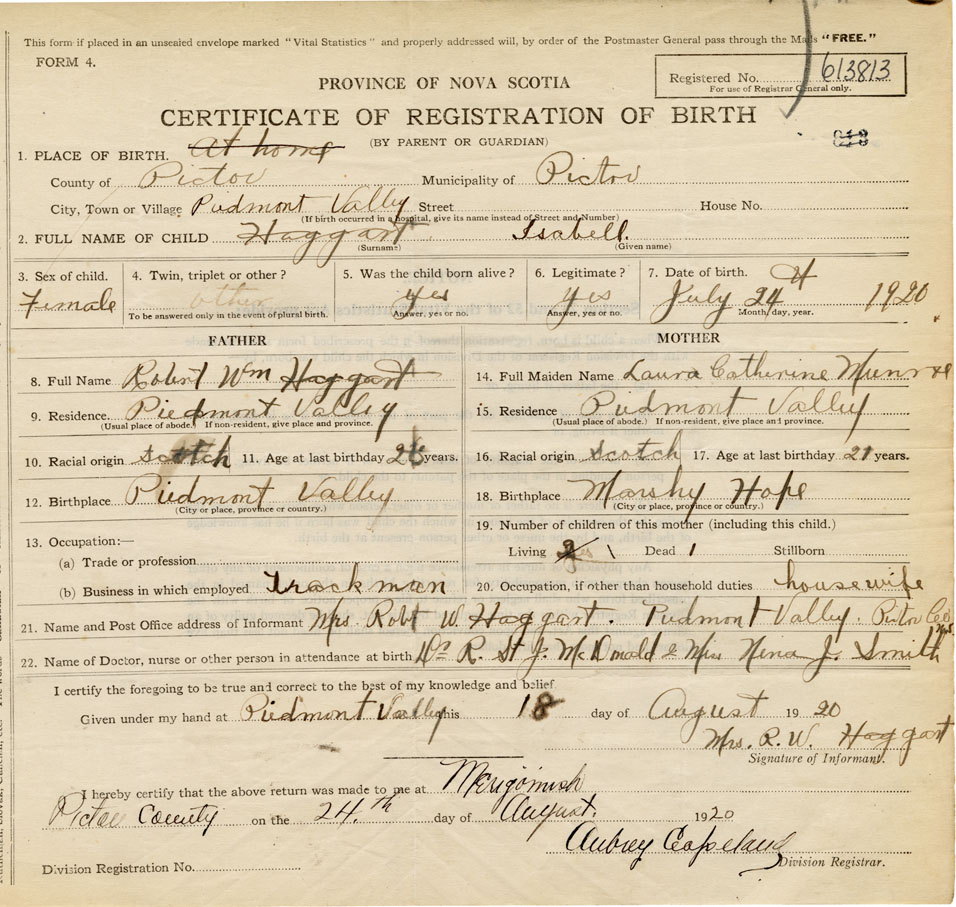 This form if placed in an unsealed envelope marked "Vital Statistics" and properly addressed will, by order of the Postmaster General pass through the Mails "FREE."
FORM 4.
Registered No. 613813
For use of Registrar General only.
PROVINCE OF NOVA SCOTIA
CERTIFICATE OF REGISTRATION OF BIRTH
(BY PARENT OR GUARDIAN)
1. PLACE OF BIRTH. At home
County of Pictou Municipality of Pictou
City, Town or Village Piedmont Valley Street House No.
(If birth occurred in a hospital, give its name instead of Street and Number)
2. FULL NAME OF CHILD Haggart Isabell.
(Surname) (Given name)
3. Sex of child. 4. Twin, triplet or other? 5. Was the child born alive? 6. Legitimate? 7. Date of birth.
Female other yes yes July 24th 1920
To be answered only in the event of plural birth. Answer, yes or no. Answer, yes or no. Month, day, year.
FATHER MOTHER
8. Full Name Robert Wm Haggart 14. Full Maiden Name Laura Catherine Munroe
9. Residence. Piedmont Valley 15. Residence Piedmont Valley
(Usual place of abode.) If non-resident, give place and province. (Usual place of abode.) If non-resident, give place and province.
10. Racial origin Scotch 11. Age at last birthday years. 16. Racial origin Scotch 17. Age at last birthday 21 years.
12. Birthplace Piedmont Valley 18. Birthplace Marshy Hope
(City or place, province or country.) (City or place, province or country.)
13. Occupation:— 19. Number of children of this mother (including this child.)
(a) Trade or profession Living 1 Dead 1 Stillborn
(b) Business in which employed Trackman 20. Occupation, if other than household duties housewife
21. Name and Post Office address of Informant Mrs. Robt W. Haggart. Piedmont Valley. Pictou Co. N.S.
22. Name of Doctor, nurse or other person in attendance at birth Dr R. St J. McDonald & Miss Nena J. Smith
I certify the foregoing to be true and correct to the best of my knowledge and belief
Given under my hand at Piedmont Valley this 18 day of August 1920
Mrs. R. W. Haggart
Signature of Informant.
I hereby certify that the above return was made to me at Merigomish
Pictou County on the 24.th day of August. 1920
Aubrey Copeland
Division Registrar.
Division Registration No.